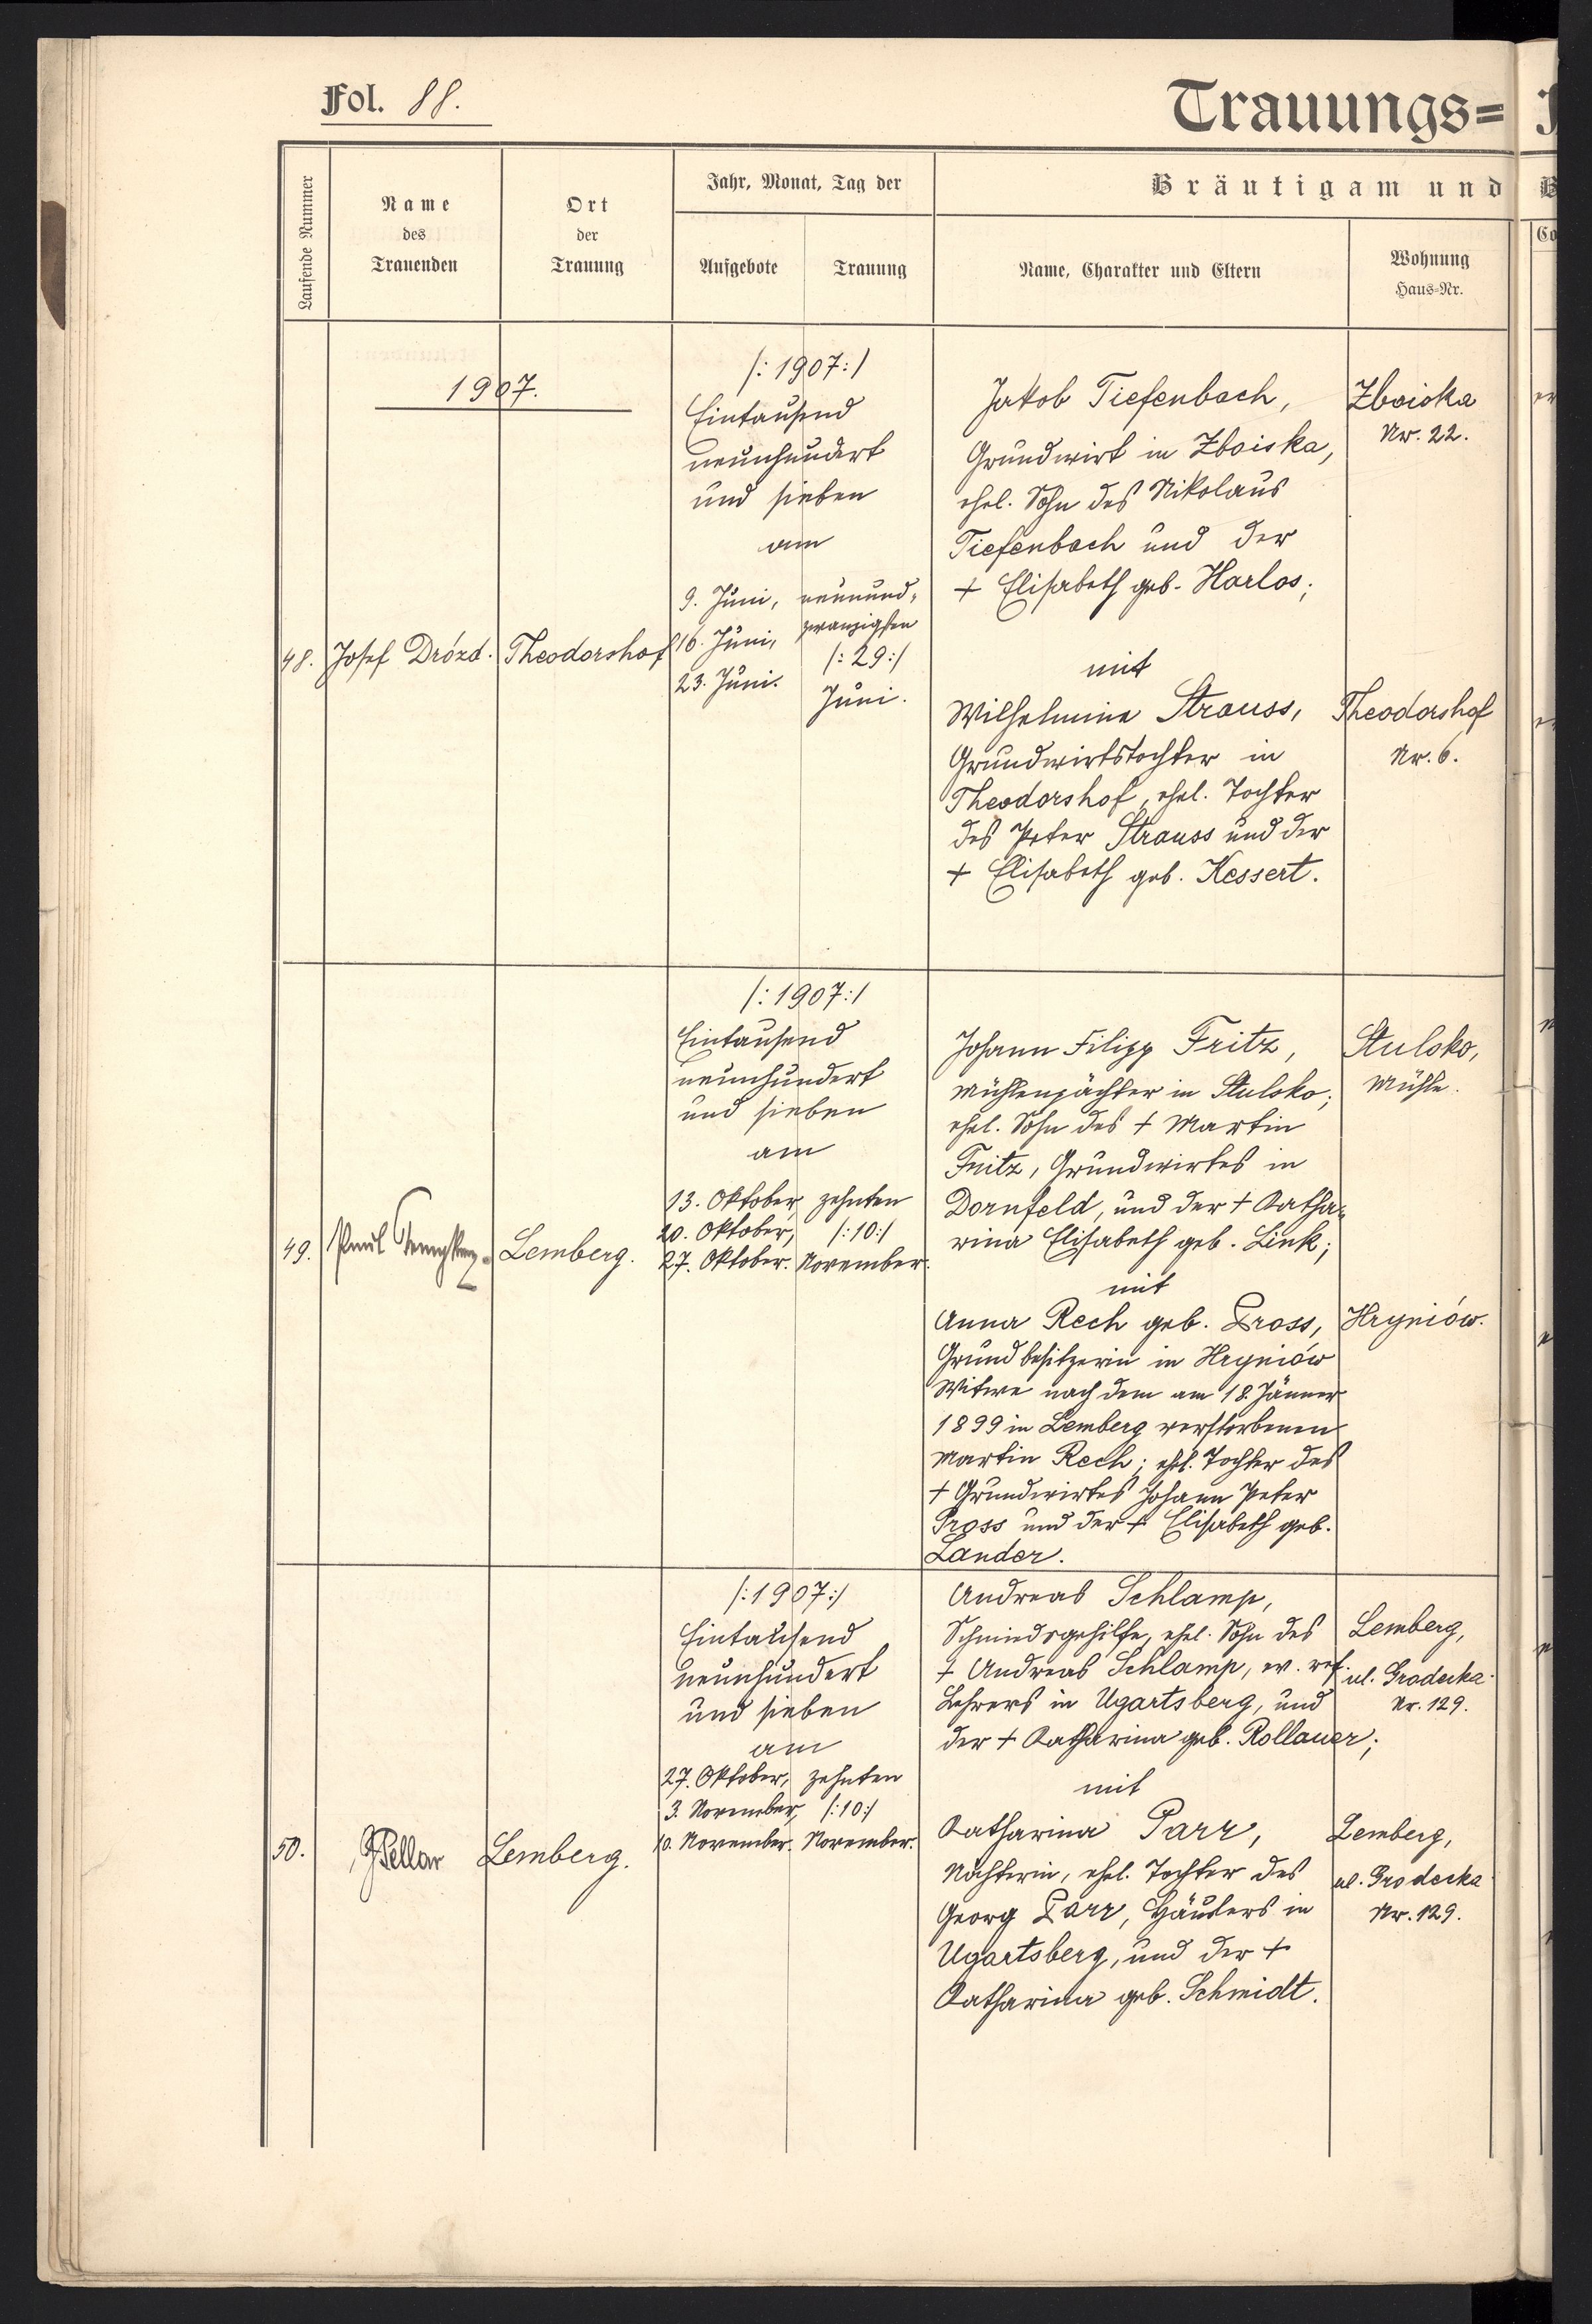 Fol. 88.
Trauungs=
Laufende Nummer
Name
des
Trauenden
Ort
der
Trauung
Jahr, Monat, Tag der
Aufgebote
Trauung
Bräutigam und
Name, Charakter und Eltern
Wohnung
Haus-Nr.
1907.
48.
Josef Drózd.
Theodorshof
/:1907:/
Eintausend
neunhundert
und sieben
am
9. Juni,
16. Juni,
23. Juni.
neunund-
zwanzigsten
/:29:/
Juni.
Jakob Tiefenbach,
Grundwirt in Zboiska,
ehel. Sohn des Nikolaus
Tiefenbach und der
+ Elisabeth geb. Harlos;
mit
Wilhelmine Strauss,
Grundwirtstochter in
Theodorshof, ehel. Tochter
des Peter Strauss und der
+ Elisabeth geb. Kessert.
Zboiska
Nr. 22.
Theodorshof
Nr. 6.
49.
Paul
Lemberg.
/:1907:/
Eintausend
neunhundert
und sieben
am
13. Oktober,
20. Oktober,
27. Oktober.
zehnten
/:10:/
November.
Johann Filipp Fritz,
Mühlenpächter in Stulsko;
ehel. Sohn des + Martin
Fritz, Grundwirtes in
Dornfeld, und der + Katha-
rina Elisabeth geb. Link;
mit
Anna Rech geb. Pross,
Grundbesitzerin in Hryniów
Witwe nach dem am 18. Jänner
1899 in Lemberg verstorbenen
Martin Rech; ehel. Tochter des
+ Grundwirtes Johann Peter
Pross und der + Elisabeth geb.
Lander.
Stulsko,
Mühle.
Hryniów.
50.
Lemberg.
/:1907:/
Eintausend
neunhundert
und sieben
am
27. Oktober,
3. November,
10. November.
zehnten
/:10:/
November.
Andreas Schlamp,
Schmiedsgehilfe, ehel. Sohn des
+ Andreas Schlamp, ev. ref.
Lehrers in Ugartsberg, und
der + Katharina geb. Rollauer;
mit
Katharina Parr,
Nähterin, ehel. Tochter des
Georg Parr, Häuslers in
Ugartsberg, und der +
Katharina geb. Schmidt.
Lemberg,
ul. Grodecka
Nr. 129.
Lemberg,
ul. Grodecka
Nr. 129.